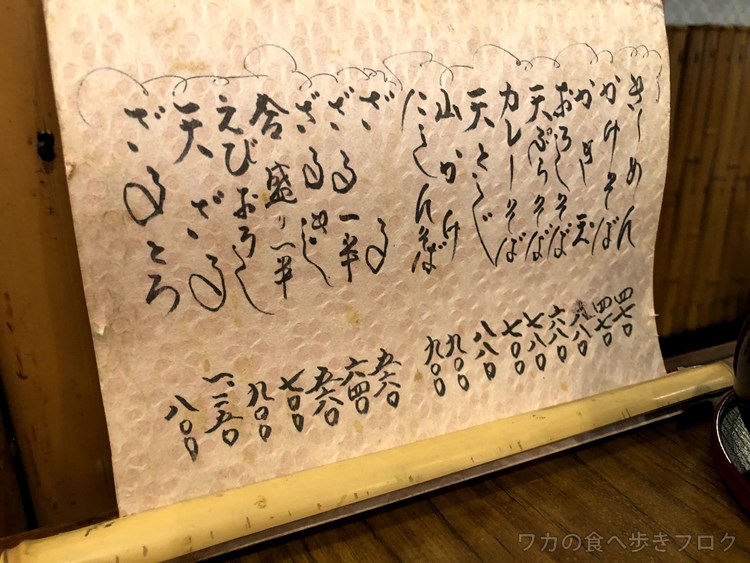 きしめん 四七〇
かけそば 四七〇
かき玉
おろしそば 六八〇
天ぷらそば 七八〇
カレーそば 七〇〇
天とじ 八八〇
山かけ 九〇〇
にしんそば 九〇〇
ざる 五六〇
ざる一半 六四〇
ざるきし 五六〇
合盛り一半 七〇〇
えびおろし 九〇〇
天ざる 一、二五〇
ざるとろ 八〇〇
ワカの食べ歩きブログ